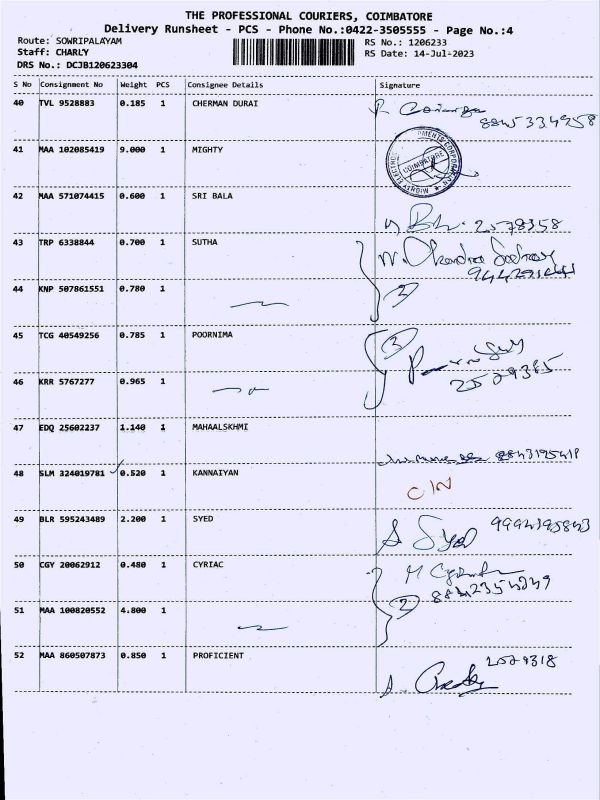 THE PROFESSIONAL COURIERS, COIMBATORE
Delivery Runsheet - PCS - Phone No.:0422-3505555 - Page No.:4
Route: SOWRIPALAYAM
RS No.: 1206233
Staff: CHARLY
RS Date: 14-Jul-2023
DRS No.: DCJB120623304
S No Consignment No Weight PCS Consignee Details Signature
40 TVL 9528883 0.185 1 CHERMAN DURAI
41 MAA 102085419 9.000 1 MIGHTY
COIMBATORE
42 MAA 571074415 0.600 1 SRI BALA
2578358
43 TRP 6338844 0.700 1 SUTHA
44 KNP 507861551 0.780 1
2
45 TCG 40549256 0.785 1 POORNIMA
2
46 KRR 5767277 0.965 1
47 EDQ 25602237 1.140 1 MAHAALSKHMI
48 SLM 324019781 0.520 1 KANNAIYAN
C/N
49 BLR 595243489 2.200 1 SYED
Syed 9994195843
50 CGY 20062912 0.480 1 CYRIAC
51 MAA 100820552 4.800 1
2
52 MAA 860507873 0.850 1 PROFICIENT